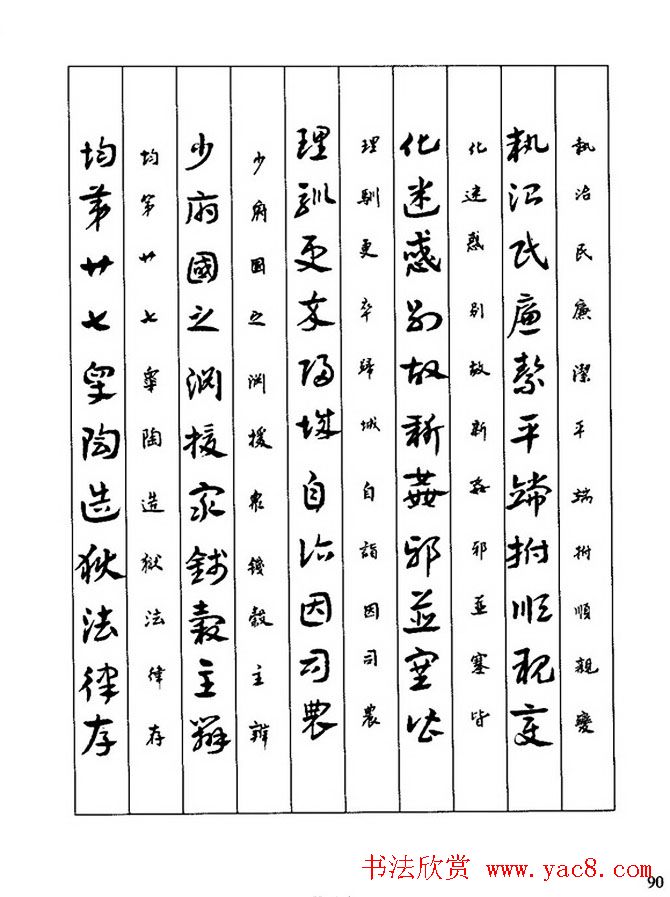 執治民廉潔平端拊順親變
執治民廉絜平端拊順親變
化迷惑別故新姦邪並塞皆
化迷惑別故新姦邪並塞皆
理馴更卒歸城自詣因司農
理馴更卒歸城自詣因司農
少府國之淵援衆錢穀主辨
少府國之淵援衆錢穀主辨
均第廿七皋陶造獄法律存
均第廿七皋陶造獄法律存
书法欣赏 www.yac8.com
90